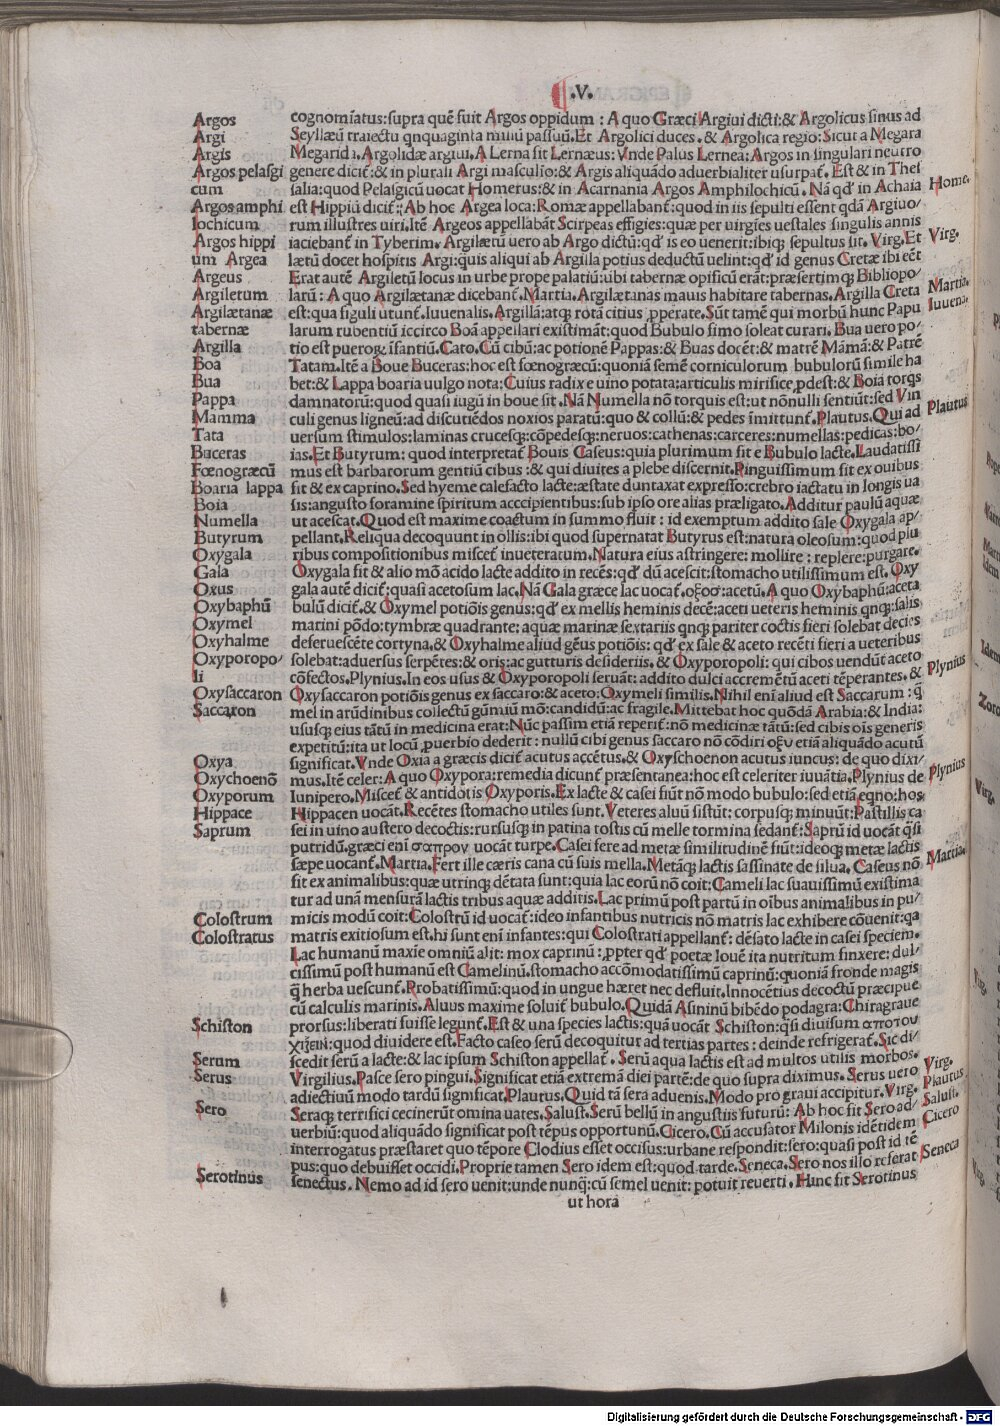 .V.
Argos cognomīatus:supra quē fuit Argos oppidum : A quo Græci Argiui dicti:& Argolicus sinus ad
Argi Scyllæū traiectu qnquaginta miliū passuū.Et Argolici duces.& Argolica regio:Sicut a Megara
Argis Megarid i.Argolidæ argiui.A Lerna sit Lernæus:Vnde Palus Lernea:Argos in singulari neutro
Argos pelasgi genere dicit:& in plurali Argi masculio:& Argis aliquādo aduerbialiter usurpat. Est & in Thes
cum salia:quod Pelasgicū uocat Homerus:& in Acarnania Argos Amphilochicū. Nā qd in Achaia Home.
Argos amphi est Hippiū dicit : Ab hoc Argea loca:Romæ appellabant:quod in iis sepulti essent qdā Argiuo/
lochicum rum illustres uiri.Itē Argeos appellabāt Scirpeas effigies:quæ per uirgies uestales singulis annis
Argos hippi iaciebant in Tyberim. Argilætū uero ab Argo dictū:qd is eo uenerit:ibiq; sepultus sit. Virg.Et Virg.
um Argea lætū docet hospitis Argi:quis aliqui ab Argilla potius deductū uelint:qd id genus Cretæ ibi eēt
Argeus Erat autē Argiletū locus in urbe prope palatiū:ubi tabernæ opificū erāt:præsertimq; Bibliopo/
Argiletum larū : A quo Argilætanæ dicebant. Martia.Argilætanas mauis habitare tabernas.Argilla Creta Martia.
Argilætanæ est:qua figuli utunt.Iuuenalis.Argillā:atq; rotā citius pperate.Sūt tamē qui morbū hunc Papu Iuuena.
tabernæ larum rubentiū iccirco Boā appellari existimāt:quod Bubulo fimo soleat curari. Bua uero po/
Argilla tio est pueroꝝ īfantiū. Cato. Cū cibū:ac potionē Pappas:& Buas docēt:& matrē Māmā:& Patrē
Boa Tatam.Itē a Boue Buceras:hoc est fœnogræcū:quoniā semē corniculorum bubulorū simile ha
Bua bet:& Lappa boaria uulgo nota:Cuius radix e uino potata:articulis mirifice pdest:& Boia torqs
Pappa damnatorū:quod quasi iugū in boue sit. Nā Numella nō torquis est:ut nōnulli sentiūt:sed Vin
Mamma culi genus ligneū:ad discutiēdos noxios paratū:quo & collū:& pedes īmittunt.Plautus.Qui ad Plautus
Tata uersum stimulos:laminas crucesq;:cōpedesq;:neruos:cathenas:carceres:numellas:pedicas:bo/
Buceras ias.Et Butyrum: quod interpretat Bouis Caseus:quia plurimum sit e Bubulo lacte.Laudatissi
Fœnogræcū mus est barbatorum gentiū cibus :& qui diuites a plebe discernit.Pinguissimum sit ex ouibus
Boaria lappa sit & ex caprino.Sed hyeme calefacto lacte:æstate duntaxat expresso:crebro iactatu in longis ua
Boia sis:angusto foramine spiritum acccipientibus:sub ipso ore alias præligato.Additur paulū aquæ
Numella ut acescat.Quod est maxime coactum in summo fluit : id exemptum addito sale Oxygala ap/
Butyrum pellant.Reliqua decoquunt in ollis:ibi quod supernatat Butyrus est:natura oleosum:quod plu
Oxygala ribus compositionibus miscet inueteratum.Natura eius astringere: mollire : replere:purgare.
Gala Oxygala fit & alio mō acido lacte addito in recēs:qd dū acescit:stomacho utilissimum est. Oxy
Oxus gala autē dicit:quasi acetosum lac.Nā Gala græce lac uocat.οξοσ:acetū. A quo Oxybaphū:aceta
Oxybaphū bulū dicit.& Oxymel potiōis genus:qd ex mellis heminis decē:aceti ueteris heminis qnq;:salis
Oxymel marini pōdo:tymbræ quadrante: aquæ marinæ sextariis qnq; pariter coctis fieri solebat decies
Oxyhalme deferuescēte cortyna.& Oxyhalme aliud genus potiōis: qd ex sale & aceto recēti fieri a ueteribus
Oxyporopo/ solebat:aduersus serpētes:& oris:ac gutturis desideriis.& Oxyporopoli:qui cibos uendūt aceto
li cōfectos.Plynius.In eos usus & Oxyporopoli seruāt:addito dulci accremētū aceti tēperantes. & Plynius
Oxysaccaron Oxysaccaron potiōis genus ex saccaro:& aceto:Oxymeli similis.Nihil enī aliud est Saccarum : q
Saccaron mel in arūdinibus collectū gūmiū mō:candidū:ac fragile.Mittebat hoc quōdā Arabia:& India:
ususq; eius tātū in medicina erat:Nūc passim etiā reperit:nō medicinæ tātū:sed cibis oīs generis
expetitū:ita ut locū puerbio dederit : nullū cibi genus saccaro nō cōdiri οξυ etiā aliquādo acutū
Oxya significat.Vnde Oxia a græcis dicit acutus accētus.& Oxyschoenon acutus iuncus: de quo dixi/
Oxychoenō mus.Itē celer:A quo Oxypora:remedia dicunt præsentanea:hoc est celeriter iuuātia.Plynius de Plynius
Oxyporum Iunipero.Miscet & antidotis Oxyporis.Ex lacte & casei fiūt nō modo bubulo:sed etiā eqno:hos
Hippace Hippacen uocāt.Recētes stomacho utiles sunt. Veteres aluū sistūt:corpusq; minuūt:Pastillis ca
Saprum sei in uino austero decoctis:rursusq; in patina tostis cū melle tormina sedant:Saprū id uocāt qsi
putridū.græci enī σαπρον uocāt turpe.Casei fere ad metæ similitudinē fiūt:ideoq; metæ lactis
sæpe uocant.Martia.Fert ille cæris cana cū suis mella.Metāq; lactis sassinate de silua. Caseus nō Martia.
fit ex animalibus:quæ utrinq; dētata sunt:quia lac eorū nō coit:Cameli lac suauissimū existima
tur ad unā mensurā lactis tribus aquæ additis.Lac primū post partū in oībus animalibus in pu/
Colostrum micis modū coit:Colostrū id uocat:ideo infantibus nutricis nō matris lac exhibere cōuenit:qa
Colostratus matris exitiosum est.hi sunt enī infantes:qui Colostrati appellant: dēsato lacte in casei speciem.
Lac humanū maxīe omniū alit: mox caprinū : ppter qd poetæ Iouē ita nutritum finxere: dul/
cissimū post humanū est Camelinū.stomacho accōmodatissimū caprinū:quoniā fronde magis
q herba uescunt.Probatissimū:quod in ungue hæret nec defluit.Innocētius decoctū præcipue
cū calculis marinis.Aluus maxime soluit bubulo.Quidā Asininū bibēdo podagra:Chiragraue
Schiston prorsus:liberati fuisse legunt.Est & una species lactis:quā uocāt Schiston:qsi diuisum αποτου
χιζειν:quod diuidere est.Facto caseo serū decoquitur ad tertias partes : deinde refrigerat.Sic di/
Serum scedit serū a lacte:& lac ipsum Schiston appellat . Serū aqua lactis est ad multos utilis morbos.
Serus Virgilius.Pasce sero pingui.Significat etiā extremā diei partē:de quo supra diximus.Serus uero Virg.
adiectiuū modo tardū significat.Plautus.Quid tā sera aduenis.Modo pro graui accipitur.Virg. Plautus
Sero Seraq; terrifici cecinerūt omina uates.Salust.Serū bellū in angustiis futurū: Ab hoc fit Sero ad/ Salust.
uerbiū:quod aliquādo significat post tēpus opportunū.Cicero.Cū accusator Milonis idētidem Cicero
interrogatus præstaret quo tēpore Clodius esset occisus:urbane respondit:sero:quasi post id tē
pus:quo debuisset occidi.Proprie tamen Sero idem est:quod tarde.Seneca.Sero nos illo referat Seneca
Serotinus senectus. Nemo ad id sero uenit:unde nunq:cū semel uenit: potuit reuerti. Hunc fit Serotinus
ut hora
Digitalisierung gefördert durch die Deutsche Forschungsgemeinschaft - DFG